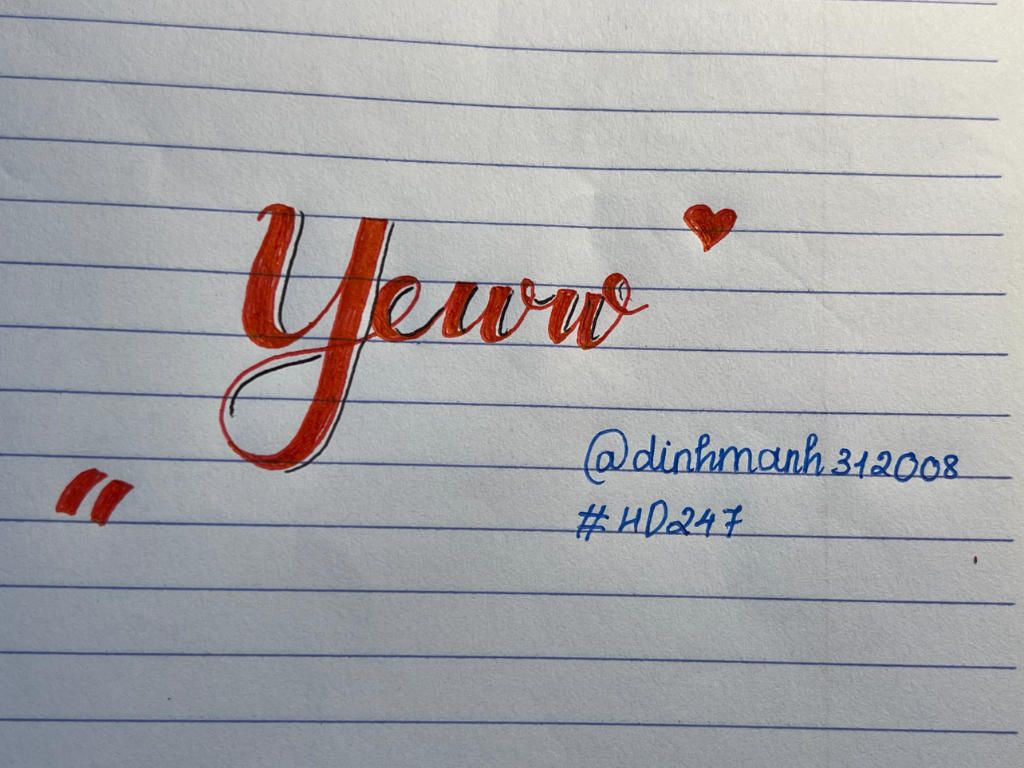 Yeww
@dinhmanh312008
#HD247
"